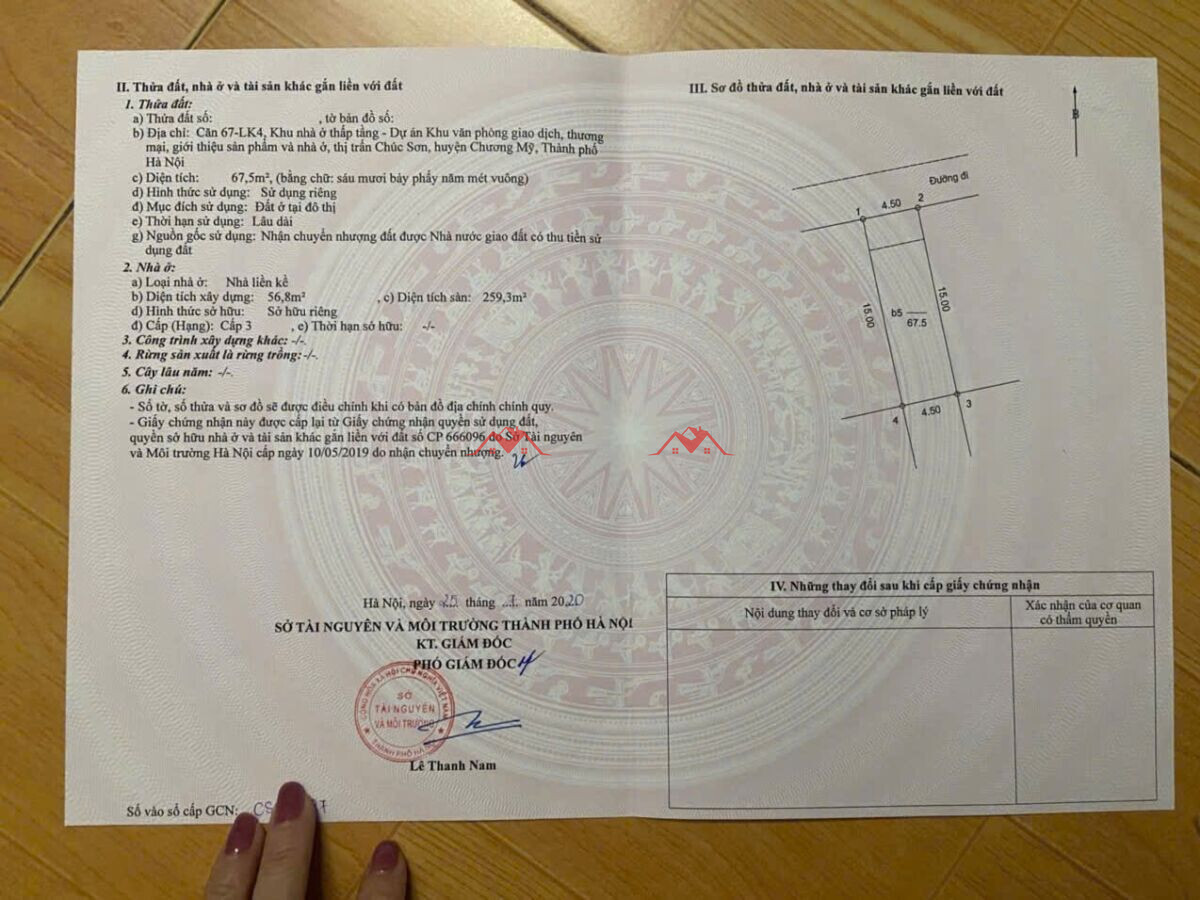 II. Thửa đất, nhà ở và tài sản khác gắn liền với đất
1. Thửa đất:
a) Thửa đất số: , tờ bản đồ số:
b) Địa chỉ: Căn 67-LK4, Khu nhà ở thấp tầng - Dự án Khu văn phòng giao dịch, thương
mại, giới thiệu sản phẩm và nhà ở, thị trấn Chúc Sơn, huyện Chương Mỹ, Thành phố
Hà Nội
c) Diện tích: 67,5m², (bằng chữ: sáu mươi bảy phẩy năm mét vuông)
d) Hình thức sử dụng: Sử dụng riêng
đ) Mục đích sử dụng: Đất ở tại đô thị
e) Thời hạn sử dụng: Lâu dài
g) Nguồn gốc sử dụng: Nhận chuyển nhượng đất được Nhà nước giao đất có thu tiền sử
dụng đất
2. Nhà ở:
a) Loại nhà ở: Nhà liền kề
b) Diện tích xây dựng: 56,8m² , c) Diện tích sàn: 259,3m²
d) Hình thức sở hữu: Sở hữu riêng
đ) Cấp (Hạng): Cấp 3 , e) Thời hạn sở hữu: -/-
3. Công trình xây dựng khác: -/-.
4. Rừng sản xuất là rừng trồng: -/-.
5. Cây lâu năm: -/-.
6. Ghi chú:
- Số tờ, số thửa và sơ đồ sẽ được điều chỉnh khi có bản đồ địa chính chính quy.
- Giấy chứng nhận này được cấp lại từ Giấy chứng nhận quyền sử dụng đất,
quyền sở hữu nhà ở và tài sản khác gắn liền với đất số CP 666096 do Sở Tài nguyên
và Môi trường Hà Nội cấp ngày 10/05/2019 do nhận chuyển nhượng.
Hà Nội, ngày 25 tháng năm 2020
SỞ TÀI NGUYÊN VÀ MÔI TRƯỜNG THÀNH PHỐ HÀ NỘI
KT. GIÁM ĐỐC
PHÓ GIÁM ĐỐC
CỘNG HÒA XÃ HỘI CHỦ NGHĨA VIỆT NAM
SỞ
TÀI NGUYÊN
VÀ MÔI TRƯỜNG
THÀNH PHỐ HÀ NỘI
Lê Thanh Nam
Số vào sổ cấp GCN: CS
III. Sơ đồ thửa đất, nhà ở và tài sản khác gắn liền với đất
B
Đường đi
1 4.50 2
15.00 15.00
b5
67.5
4 4.50 3
IV. Những thay đổi sau khi cấp giấy chứng nhận
Nội dung thay đổi và cơ sở pháp lý
Xác nhận của cơ quan
có thẩm quyền